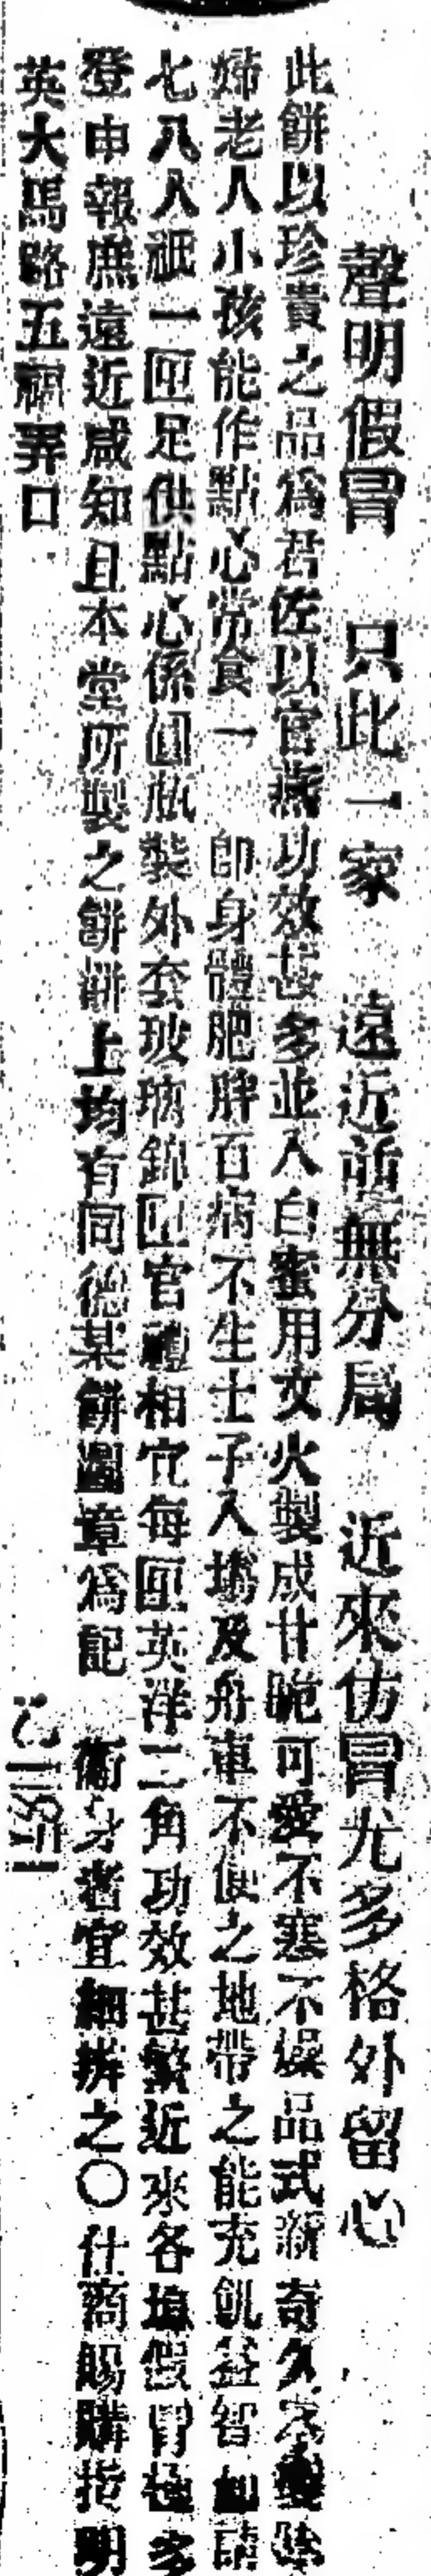 聲明假冒　只此一家　遠近並無分局　近來仿冒尤多格外留心
此餅以珍貴之品爲君佐以官燕功效甚多並入白蜜用文火製成甘脆可愛不寒不燥品式新奇久不變味
婦老人小孩能作點心常食一　即身體肥胖百病不生士子入塲及舟車不便之地帶之能充飢益智如請
七八人祗一匣足供點心係圓瓶裝外套玻璃錦匣官禮相宜每匣英洋二角功效甚繁近來各埠假冒極多
登申報庶遠近咸知且本堂所製之餅餅上均有同德某餅圖章爲記　衛身者宜細辨之〇仕商賜購指明
英大馬路五福弄口